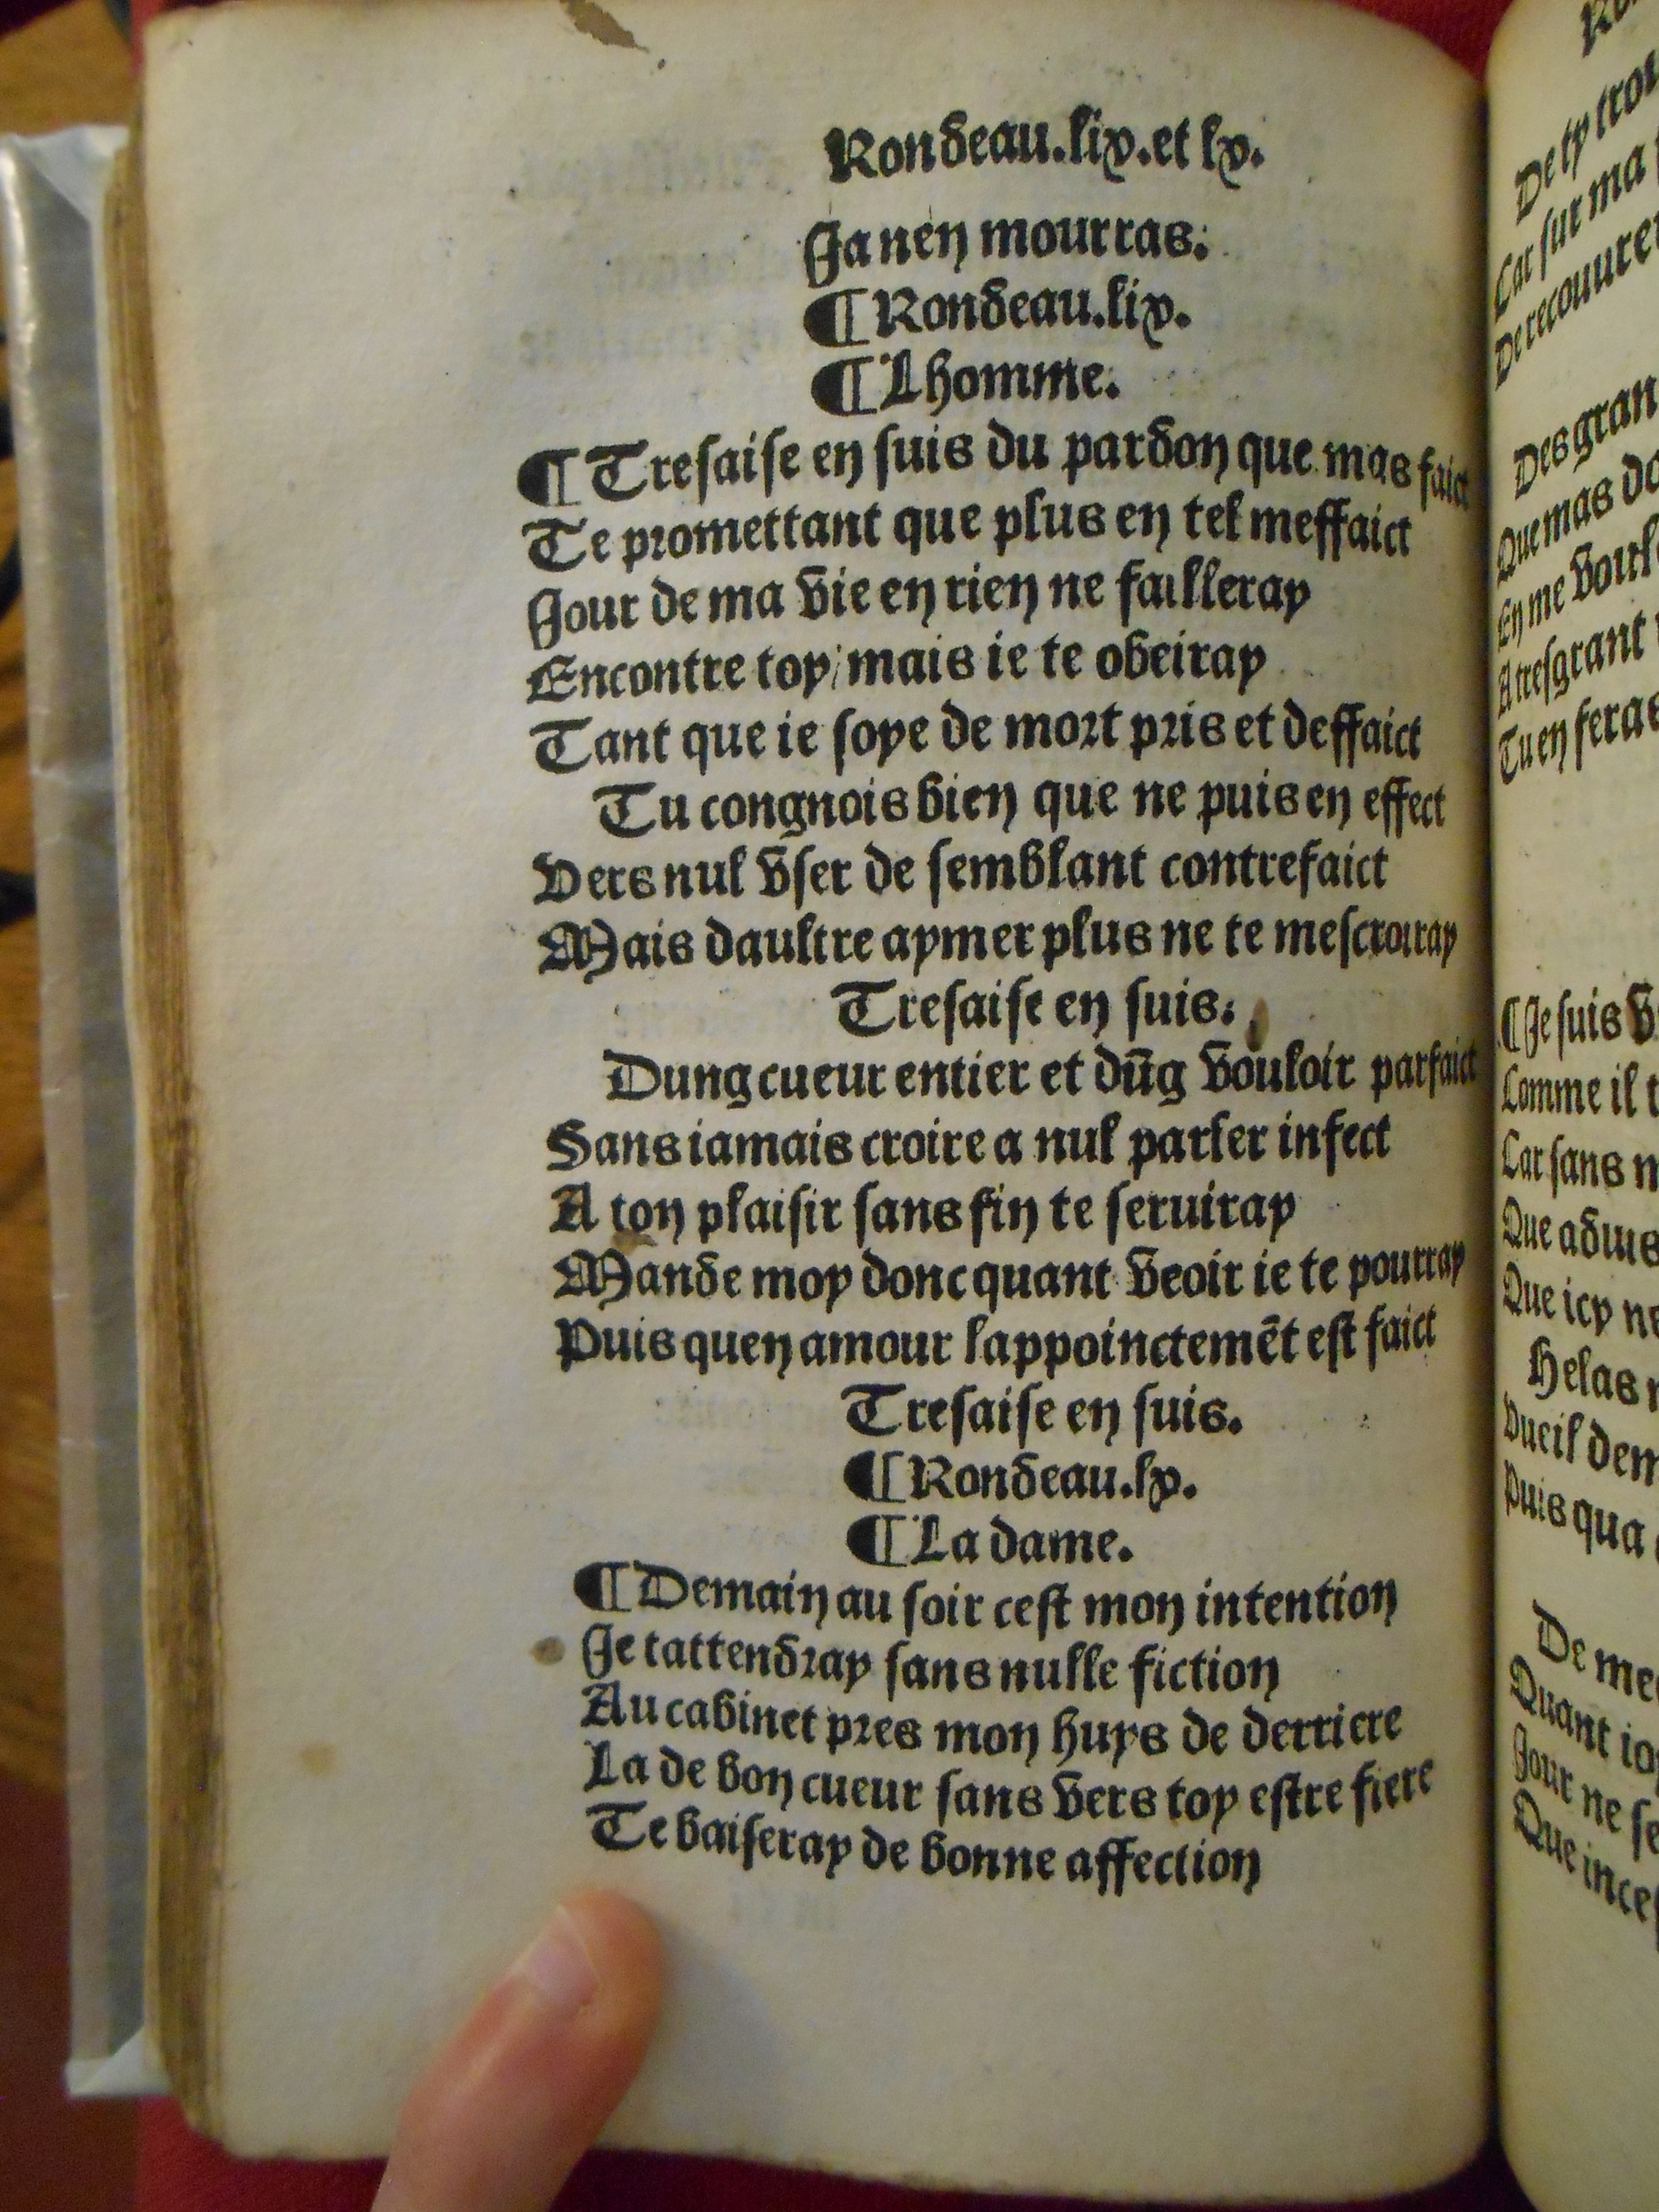 Rondeau.lix.et lx.
Ja nen mourras.
¶ Rondeau.lix.
¶ Lhomme.
¶ Tresaise en suis du pardon que mas faict
Te promettant que plus en tel meffaict
Jour de ma vie en rien ne failleray
Encontre toy/mais ie te obeiray
Tant que ie soye de mort pris et deffaict
Tu congnois bien que ne puis en effect
Vers nul vser de semblant contrefaict
Mais daultre aymer plus ne te mescroiray
Tresaise en suis.
Dung cueur entier et dūg vouloir parfaict
Sans iamais croire a nul parler infect
A ton plaisir sans fin te seruiray
Mande moy donc quant veoir ie te pourray
Puis quen amour lappoinctemēt est faict
Tresaise en suis.
¶ Rondeau.lx.
¶ La dame.
¶ Demain au soir cest mon intention
Je tattendray sans nulle fiction
Au cabinet pres mon huys de derriere
La de bon cueur sans vers toy estre fiere
Te baiseray de bonne affection
De ty
Car sur ma
De recouurer
Des
Que mas
En me
A tresgrant
Tu en feras
¶ Je suis
Comme il
Car sans
Que aduis
Que icy
Helas
Vueil
Puis qua
De
Quant
Jour ne
Que